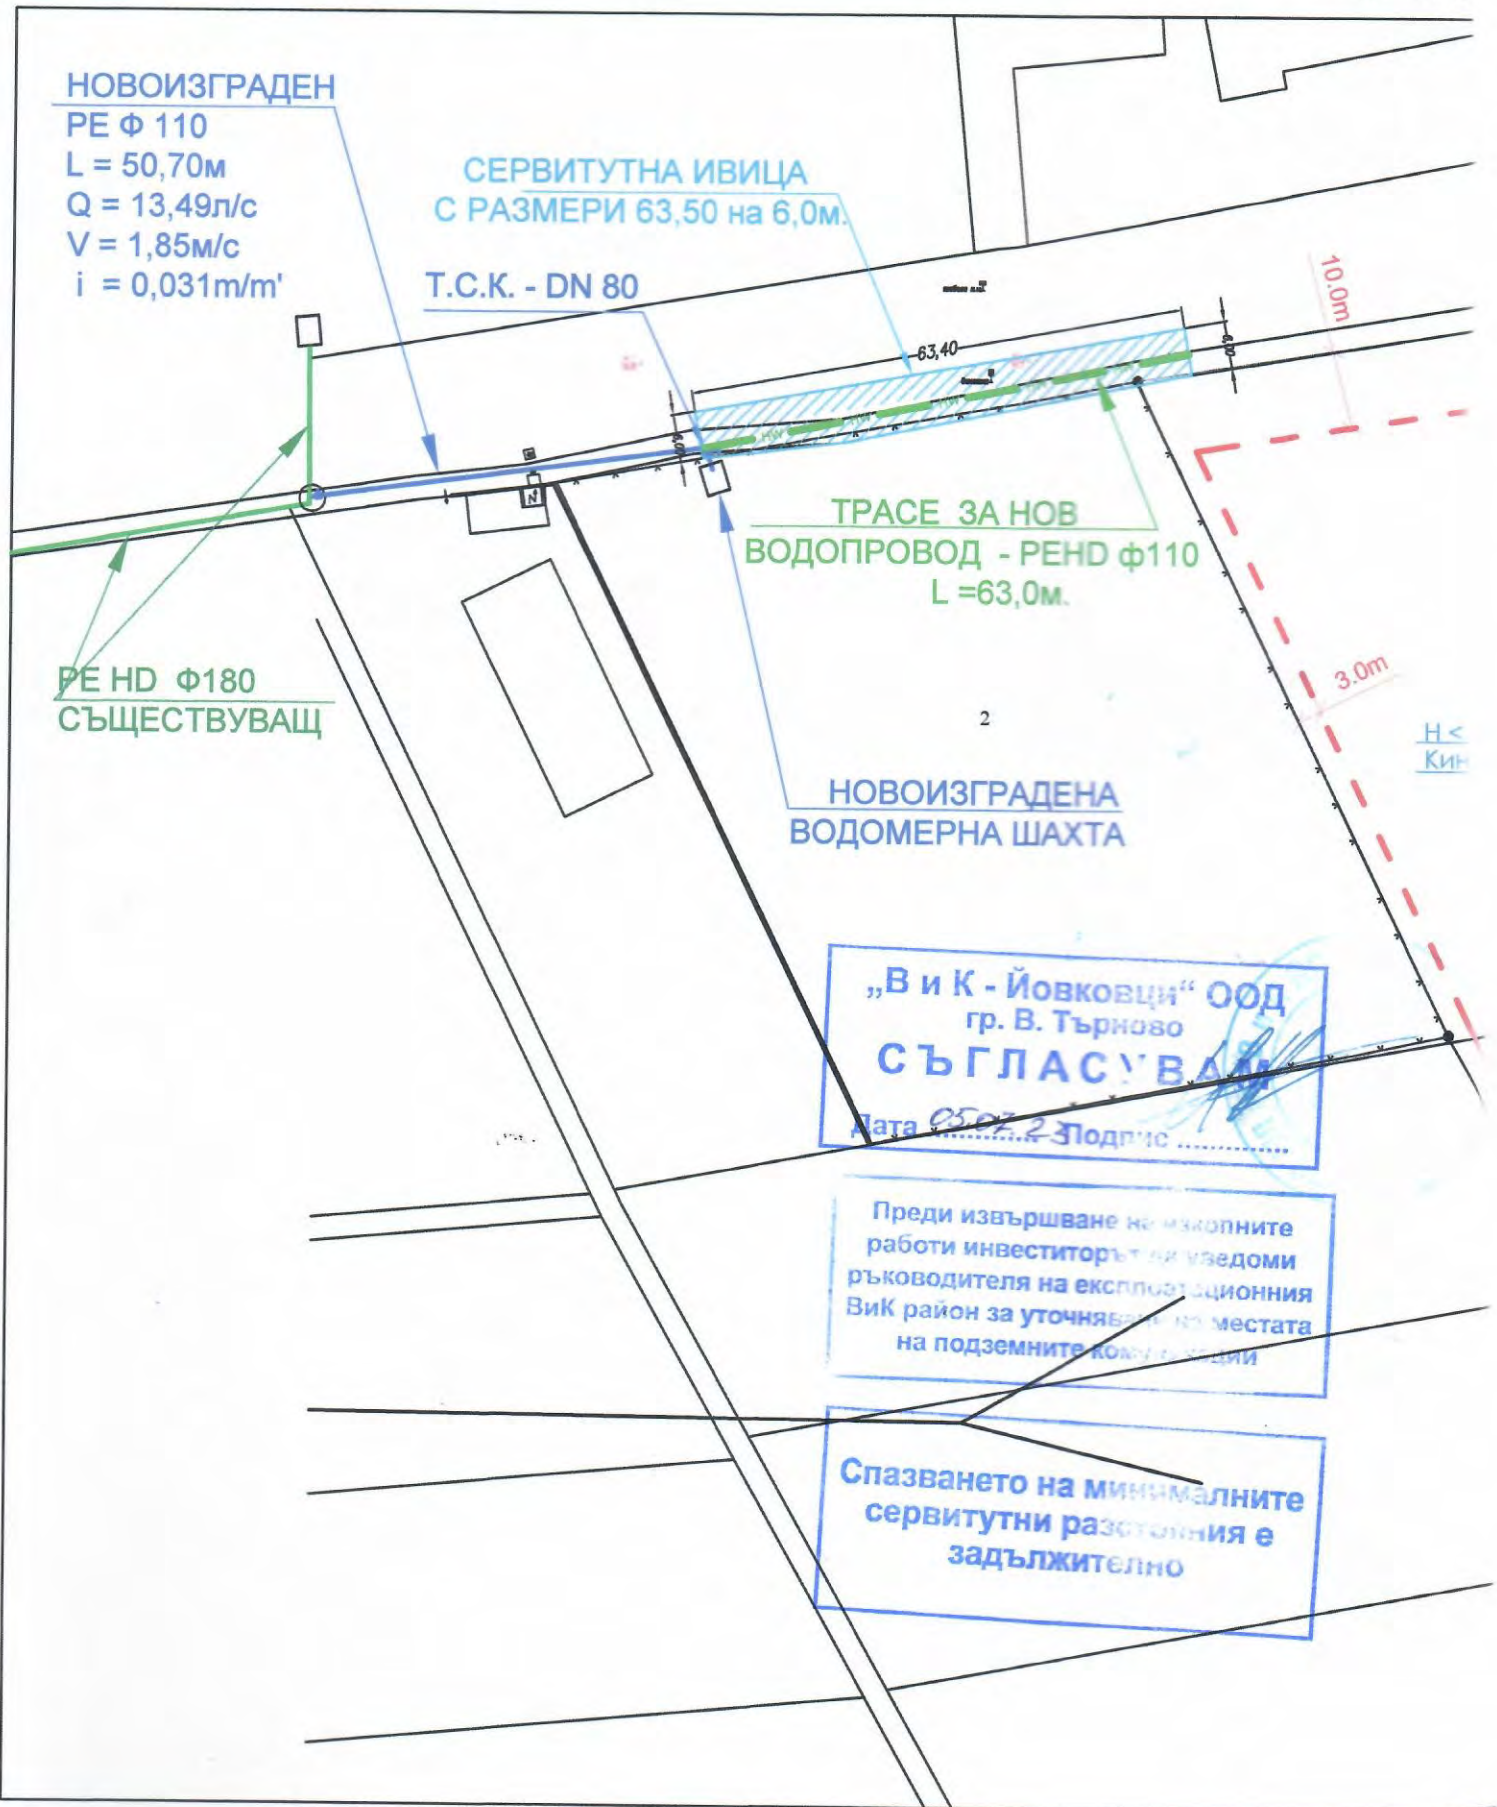 НОВОИЗГРАДЕН
PE Ф 110
L = 50,70м
Q = 13,49л/с
V = 1,85м/с
i = 0,031m/m'
СЕРВИТУТНА ИВИЦА
С РАЗМЕРИ 63,50 на 6,0м.
Т.С.К. - DN 80
10.0m
63,40
6,00
6,00
ТРАСЕ ЗА НОВ
ВОДОПРОВОД - PEHD ф110
L =63,0м.
PE HD Ф180
СЪЩЕСТВУВАЩ
3.0m
2
H <
Кин
НОВОИЗГРАДЕНА
ВОДОМЕРНА ШАХТА
„В и К - Йовковци“ ООД
гр. В. Търново
СЪГЛАСУВАМ
Дата 05.07.23 Подпис
Преди извършване на изкопните
работи инвеститорът да уведоми
ръководителя на експлоатационния
ВиК район за уточняване на местата
на подземните комуникации
Спазването на минималните
сервитутни разстояния е
задължително